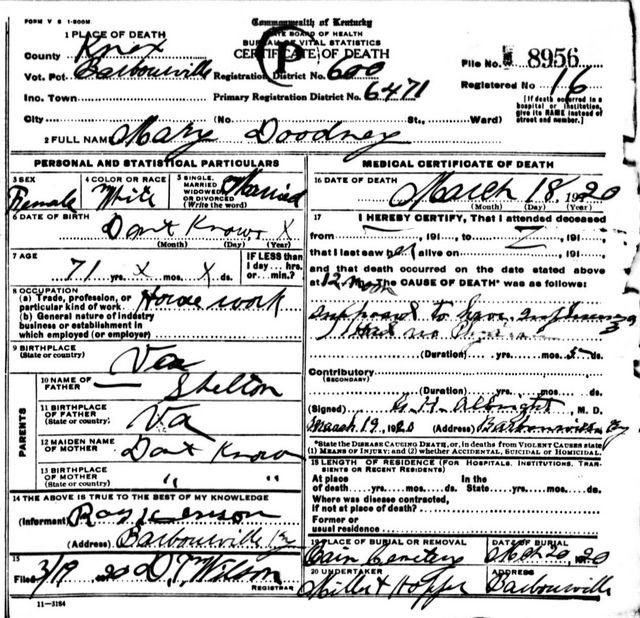 FORM V S 1-500M
Commonwealth of Kentucky
STATE BOARD OF HEALTH
BUREAU OF VITAL STATISTICS
CERTIFICATE OF DEATH
P
1 PLACE OF DEATH
County Knox
Vot. Pct. Barbourville
Inc. Town
City (No. St., Ward)
Registration District No. 600
Primary Registration District No. 6471
File No. 8956
Registered No. 16
[If death occurred in a hospital or institution, give its NAME instead of street and number.]
2 FULL NAME Mary Doodney
PERSONAL AND STATISTICAL PARTICULARS
3 SEX Female
4 COLOR OR RACE White
5 SINGLE, MARRIED WIDOWED OR DIVORCED (Write the word) Married
6 DATE OF BIRTH Dont Know X
(Month) (Day) (Year)
7 AGE 71 yrs. X mos. X ds.
IF LESS than 1 day... hrs. or... min.?
8 OCCUPATION
(a) Trade, profession, or particular kind of work House work
(b) General nature of industry business or establishment in which employed (or employer)
9 BIRTHPLACE (State or country) Va
PARENTS
10 NAME OF FATHER — Shelton
11 BIRTHPLACE OF FATHER (State or country) Va
12 MAIDEN NAME OF MOTHER Dont Know
13 BIRTHPLACE OF MOTHER (State or country) " "
14 THE ABOVE IS TRUE TO THE BEST OF MY KNOWLEDGE
(Informant) Ray
(Address) Barbourville Ky
15
Filed 3/19 1920 D. T. Wilson
REGISTRAR
11-3184
MEDICAL CERTIFICATE OF DEATH
16 DATE OF DEATH March 18, 1920
(Month) (Day) (Year)
17 I HEREBY CERTIFY, That I attended deceased
from , 191 , to , 191 ,
that I last saw her alive on , 191 ,
and that death occurred on the date stated above
at 12 m. The CAUSE OF DEATH* was as follows:
Supposed to have Influenza
Had no
(Duration) yrs. mos. 5 ds.
Contributory
(SECONDARY)
(Duration) yrs. mos. ds.
(Signed) G. H. Albright, M. D.
March 19, 1920 (Address) Barbourville Ky
*State the DISEASE CAUSING DEATH, or, in deaths from VIOLENT CAUSES state (1) MEANS OF INJURY; and (2) whether ACCIDENTAL, SUICIDAL OR HOMICIDAL.
18 LENGTH OF RESIDENCE (FOR HOSPITALS, INSTITUTIONS, TRANSIENTS OR RECENT RESIDENTS)
At place of death yrs. mos. ds. In the State yrs. mos. ds.
Where was disease contracted, if not at place of death?
Former or usual residence
19 PLACE OF BURIAL OR REMOVAL Cain Cemetery
DATE OF BURIAL Mch 20, 1920
20 UNDERTAKER Miller & Hopper
ADDRESS Barbourville